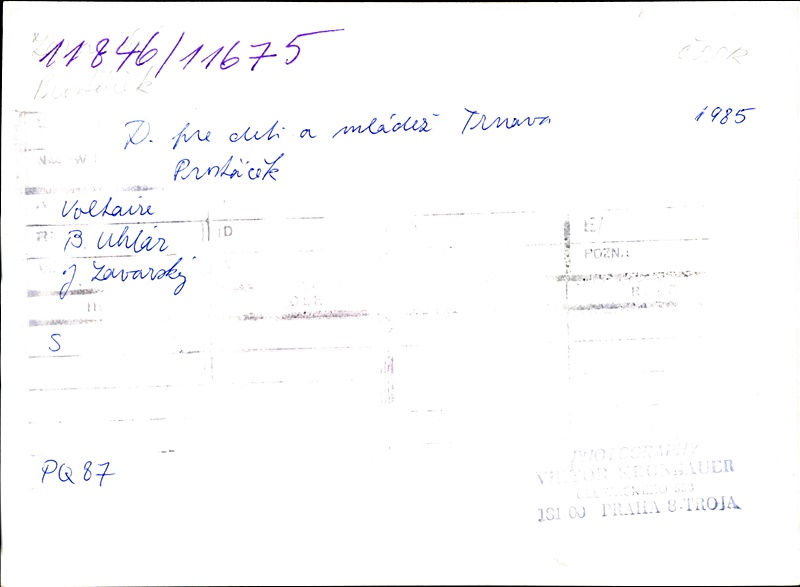 11846/11675
ČSSR
D. pre deti a mládež Trnava 1985
Prostáček
Voltaire
B. Uhlár
J. Zavarský
POZN.:
S
PQ 87
PHOTOGRAPHY
VIKTOR KRONBAUER
181 00 PRAHA 8-TROJA